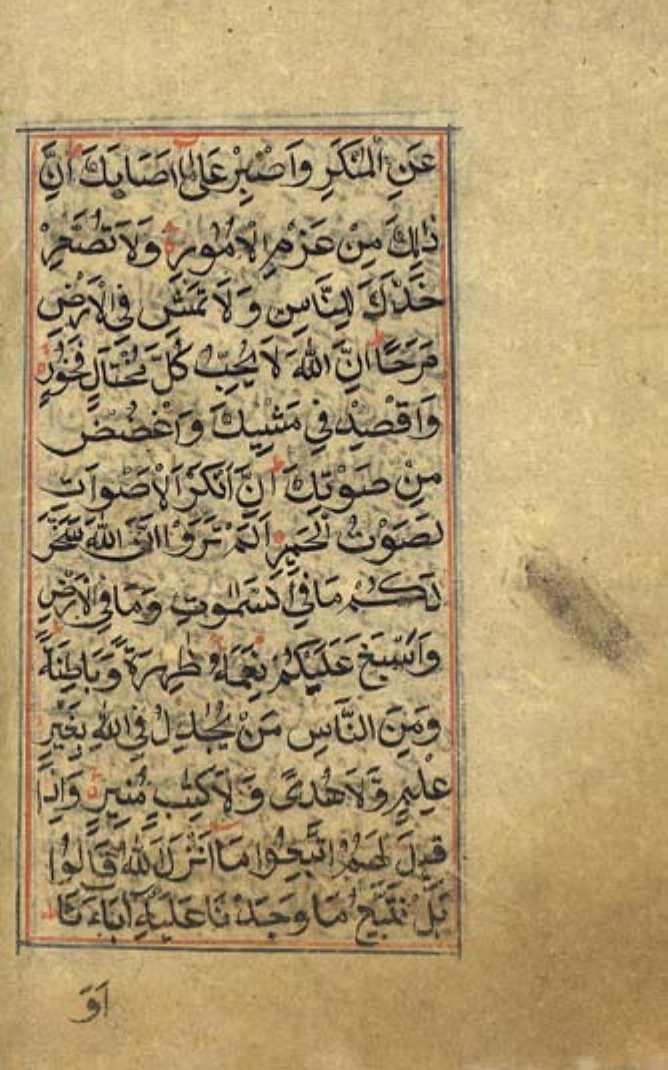 عَنِ الْمُنْكَرِ وَاصْبِرْ عَلٰى مَا اَصَابَكَ اِنَّ
ذٰلِكَ مِنْ عَزْمِ الْاُمُورِ وَلَا تُصَعِّرْ
خَدَّكَ لِلنَّاسِ وَلَا تَمْشِ فِي الْاَرْضِ
مَرَحًا اِنَّ اللّٰهَ لَا يُحِبُّ كُلَّ مُخْتَالٍ فَخُوْرٍ
وَاقْصِدْ فِي مَشْيِكَ وَاغْضُضْ
مِنْ صَوْتِكَ اِنَّ اَنْكَرَ الْاَصْوَاتِ
لَصَوْتُ الْحَمِيْرِ اَلَمْ تَرَوْا اَنَّ اللّٰهَ سَخَّرَ
لَكُمْ مَا فِي السَّمٰوٰتِ وَمَا فِي الْاَرْضِ
وَاَسْبَغَ عَلَيْكُمْ نِعَمَهُ ظٰهِرَةً وَّبَاطِنَةً
وَمِنَ النَّاسِ مَنْ يُّجَادِلُ فِي اللّٰهِ بِغَيْرِ
عِلْمٍ وَّلَا هُدًى وَّلَا كِتٰبٍ مُّنِيْرٍ وَاِذَا
قِيْلَ لَهُمُ اتَّبِعُوْا مَا اَنْزَلَ اللّٰهُ قَالُوْا
بَلْ نَتَّبِعُ مَا وَجَدْنَا عَلَيْهِ اٰبَاءَنَا
اَوَ